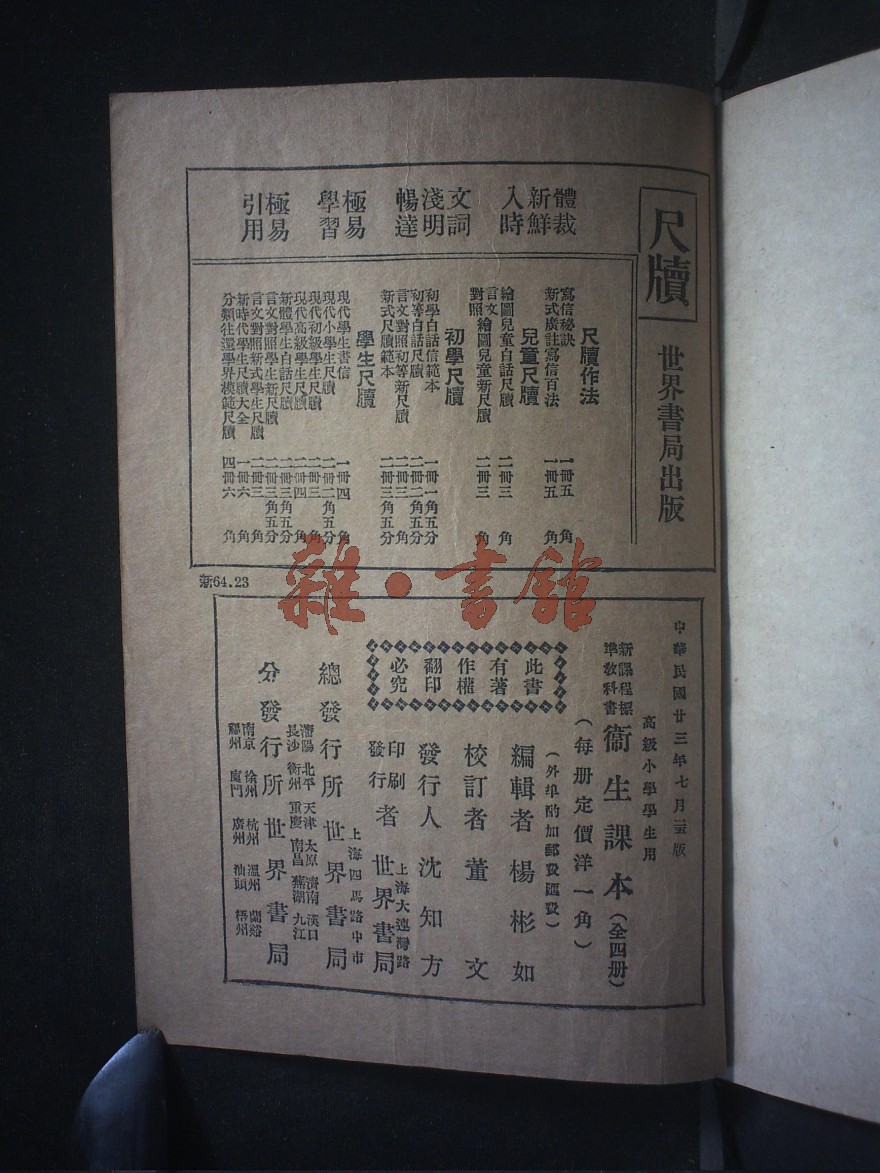 尺牘 世界書局出版
體裁新鮮入時
文詞淺明暢達
極易學習
極易引用
尺牘作法
寫信秘訣 一冊五角
新式廣註寫信百法 一冊五角
兒童尺牘
繪圖兒童白話尺牘 二冊三角
言文對照繪圖兒童新尺牘 二冊三角
初學尺牘
初學白話信範本 一冊一角五分
初等白話尺牘 二冊二角五分
言文對照初等新尺牘 二冊三角
新式尺牘範本 二冊三角五分
學生尺牘
現代學生書信 一冊四角
現代小學生尺牘 二冊二角五分
現代初級學生尺牘 二冊三角
現代高級學生尺牘 二冊四角
新體學生白話尺牘 二冊三角五分
言文對照學生新尺牘 二冊三角五分
言文對照新式學生尺牘 二冊三角
新時代學生尺牘大全 一冊六角
分類往還學界模範尺牘 四冊六角
新64.23
雜·書館
中華民國廿三年七月三版
高級小學學生用
新課程標準教科書 衞生課本（全四冊）
（每册定價洋一角）
（外埠酌加郵費匯費）
編輯者 楊彬如
校訂者 董文
發行人 沈知方
印刷發行者 上海大連灣路 世界書局
上海四馬路中市
總發行所 世界書局
瀋陽 北平 天津 太原 濟南 漢口
長沙 衡州 重慶 南昌 蕪湖 九江
分發行所 世界書局
南京 徐州 杭州 溫州 蘭谿
福州 廈門 廣州 汕頭 梧州
此書有著作權翻印必究